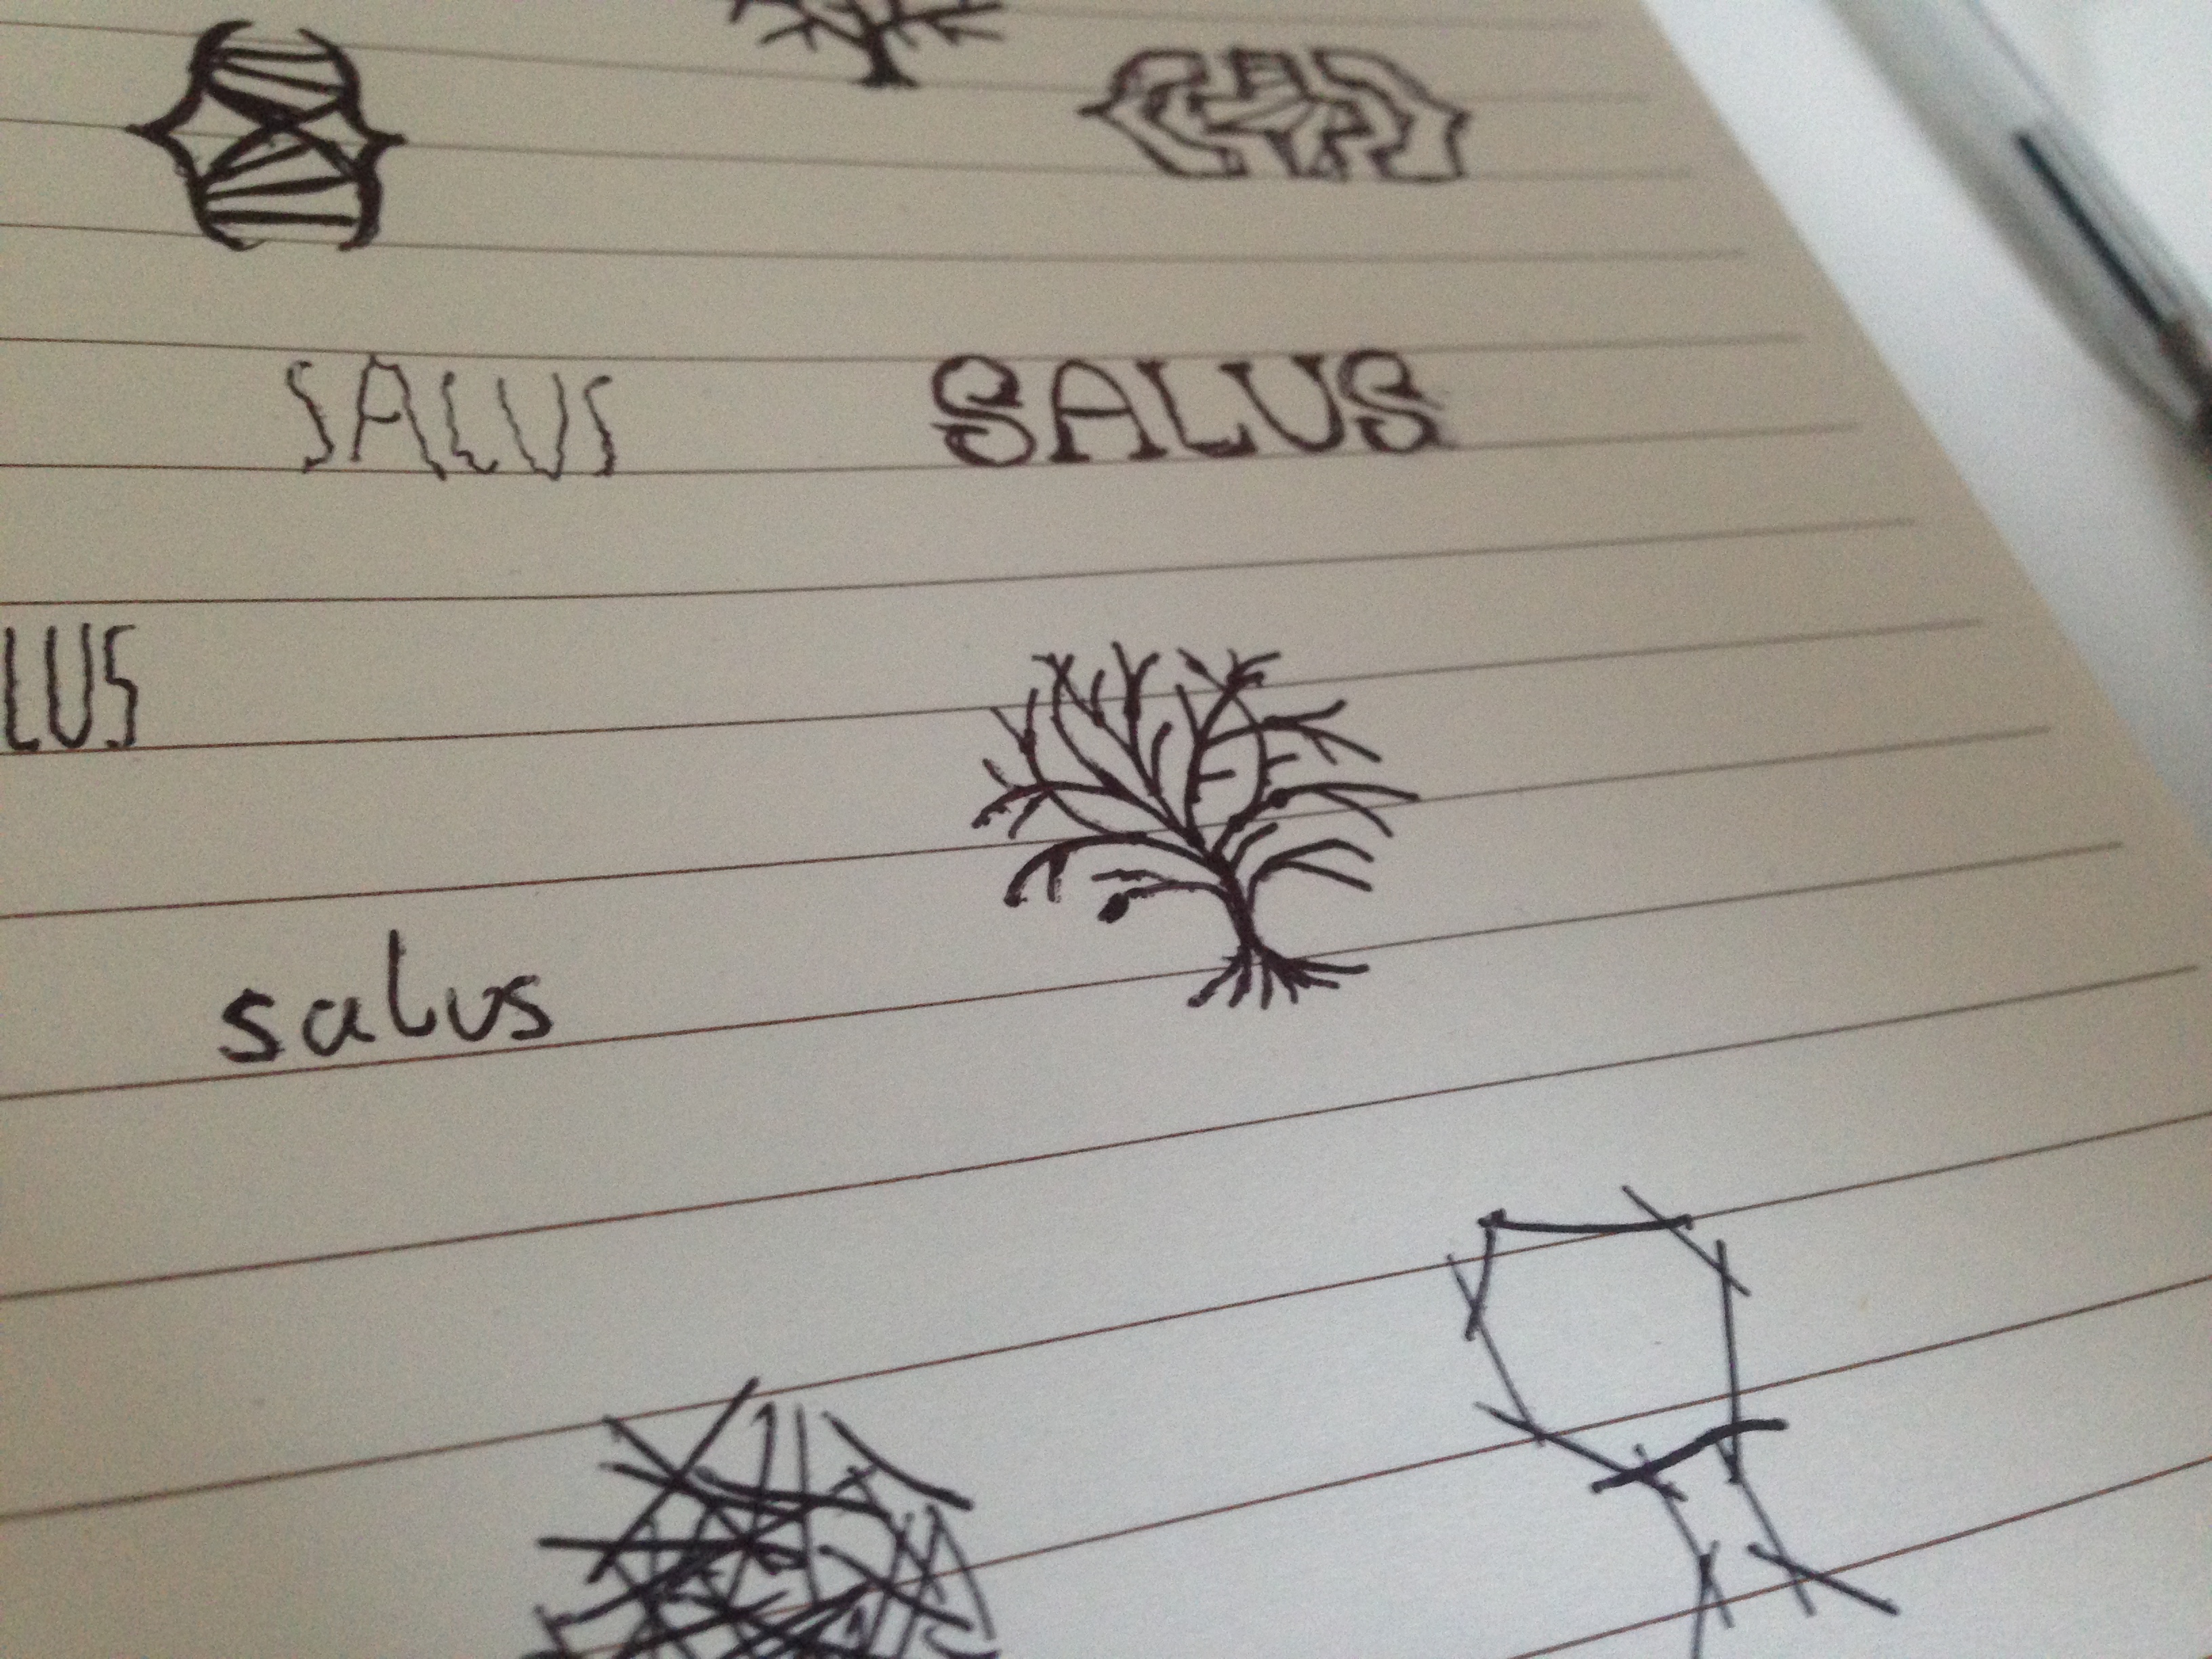 SALUS SALUS
LUS
salus